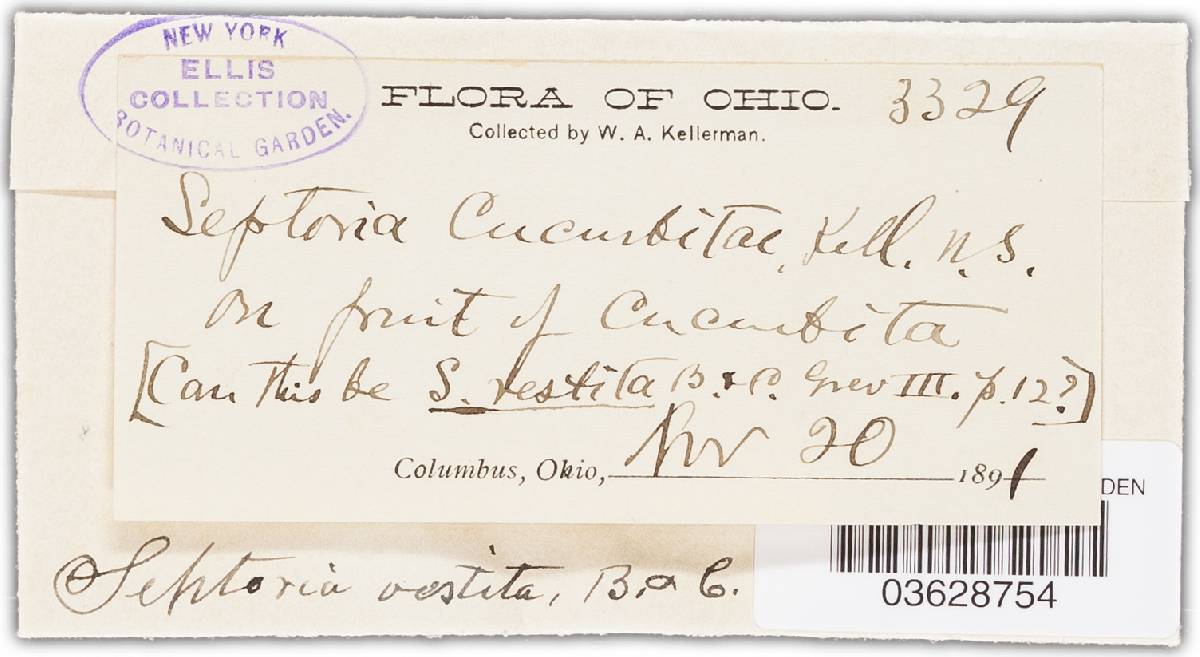 NEW YORK
ELLIS
COLLECTION
BOTANICAL GARDEN.
FLORA OF OHIO. 3329
Collected by W. A. Kellerman.
Septoria Cucurbitae, Kell. N. S.
on fruit of Cucurbita
[Can this be S. vestita B. & C. Grev III. p. 12?]
Columbus, Ohio, Nov 20 1891
DEN
03628754
Septoria vestita, B. & C.